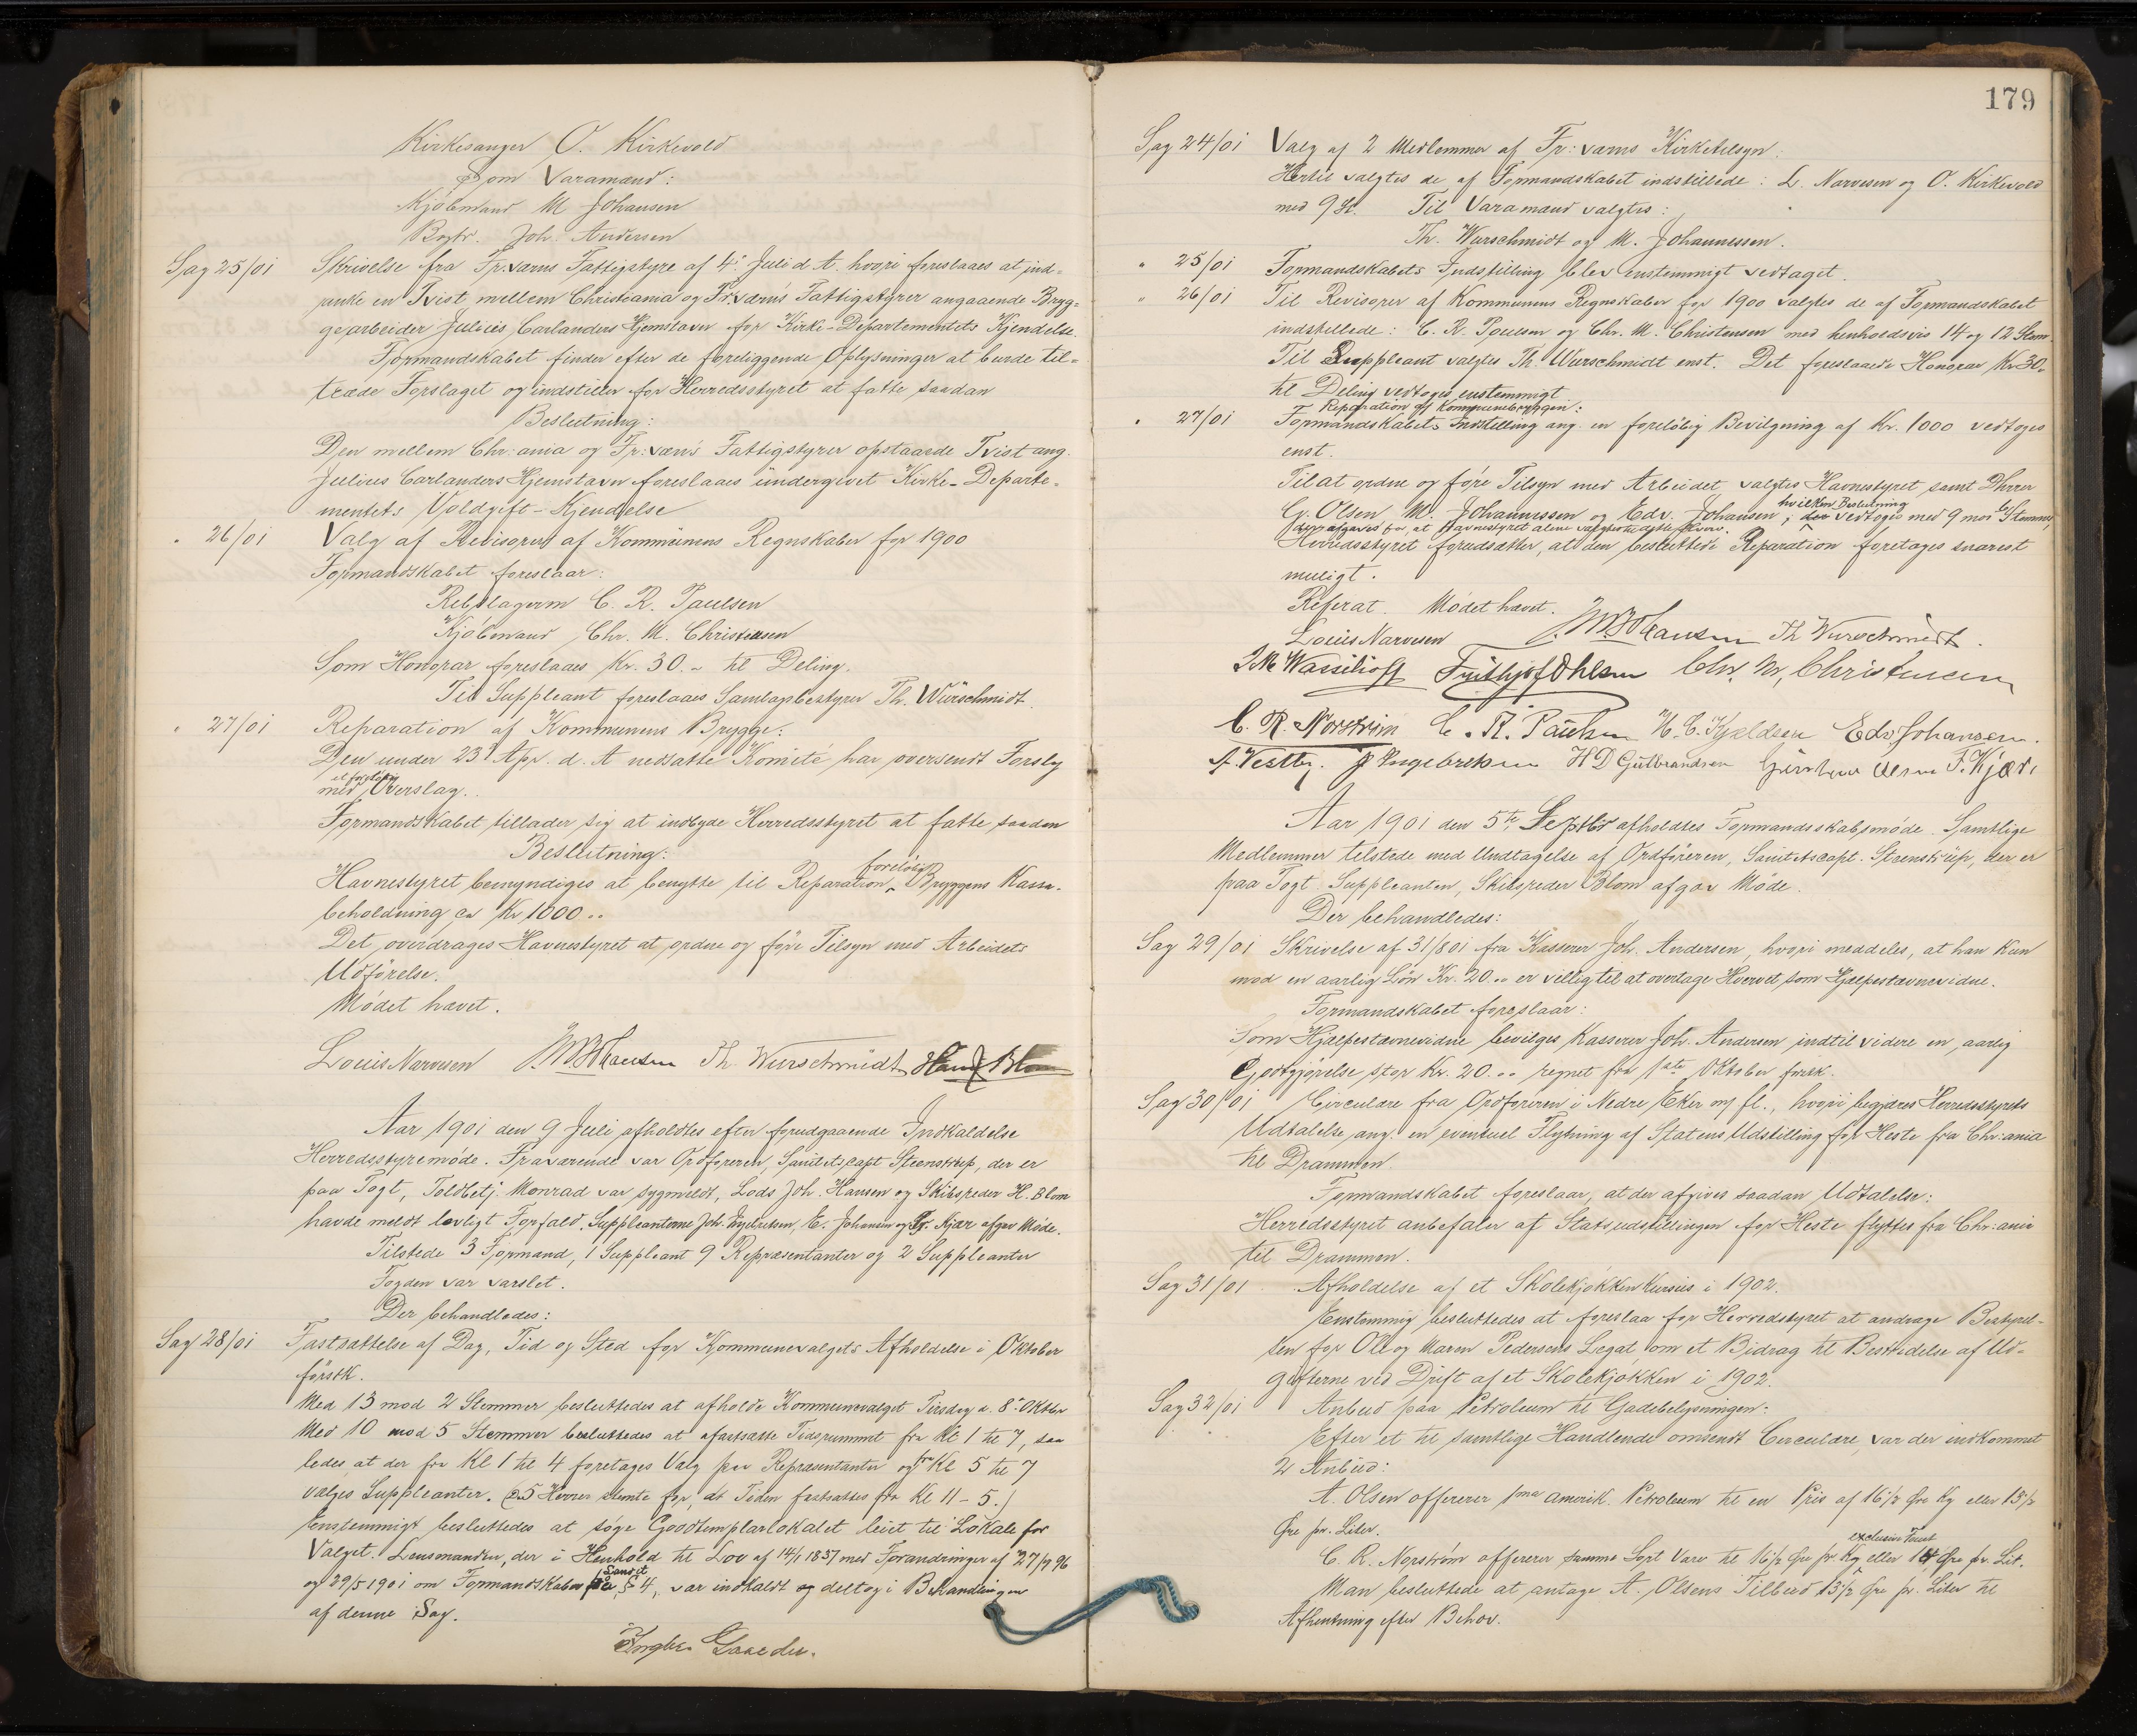 Kirkesanger O. Kirkevold
Som Varamænd:
Kjøbmand M Johansen
Bogtr. Joh. Andersen
Sag 25/01 Skrivelse fra Fr:værns Fattigstyre af 4: Juli d. A. hvori foreslaaes at ind-
anke en Tvist mellem Christiania og Fr:værns Fattigstyrer angaaende Bryg-
gearbeider Julius Carlanders Hjemstavn for Kirke-Departementets Kjendelse.
Formandskabet finder efter de foreliggende Oplysninger at burde til-
træde Forslaget og indstiller for Herredsstyret at fatte saadan
Beslutning:
Den mellem Chr:ania og Fr:værns Fattigstyrer opstaaede Tvist ang.
Julius Carlanders Hjemstavn foreslaaes undergivet Kirke-Departe-
mentets Voldgift-Kjendelse
" 26/01 Valg af Revisorer af Kommunens Regnskaber for 1900
Formandskabet foreslaar:
Rebslagerm C. R. Paulsen
Kjøbmand Chr. M. Christensen
Som Honorar foreslaaes Kr. 30.- til Deling.
Til Suppleant foreslaaes Samlagsbestyrer Th. Würschmidt.
" 27/01 Reparation af Kommunens Brygge:
Den under 23d Apr. d. A nedsatte Komité har oversendt Forslag
med et foreløbig Overslag.
Formandskabet tillader sig at indbyde Herredsstyret at fatte saadan
Beslutning:
Havnestyret bemyndiges at benytte til Reparation foreløbig Bryggens Kasse-
beholdning ca Kr 1000..
Det overdrages Havnestyret at ordne og føre Tilsyn med Arbeidets
Udførelse.
Mødet hævet.
Louis Narvesen M Johansen Th. Wurschmidt Hans Blom
Aar 1901 den 9 Juli afholdtes efter forudgaaende Indkaldelse
Herredsstyremøde. Fraværende var Ordføreren, Sanitetscapt Steenstrup, der er
paa Togt, Toldbetj. Monrad var sygmeldt, Lods Joh. Hansen og Skibsreder H. Blom
havde meldt lovligt Forfald. Suppleanterne Joh. Engebretsen, E. Johansen og Fr. Kjær afgav Møde.
Tilstede 3 Formænd, 1 Suppleant 9 Repræsentanter og 2 Suppleanter
Fogden var varslet.
Der behandledes:
Sag 28/01 Fastsættelse af Dag, Tid og Sted for Kommunevalgets Afholdelse i Oktober
førstk.
Med 13 mod 2 Stemmer besluttedes at afholde Kommunevalget Tirsdag d. 8de Oktbr
Med 10 mod 5 Stemmer besluttedes at fastsætte Tidsrummet fra Kl 1 til 7, saa
ledes at der fra Kl 1 til 4 foretages Valg paa Repræsentanter og fra Kl 5 til 7
vælges Suppleanter. (25 Herrer stemte for, at Tiden fastsættes fra Kl 11 - 5.)
Enstemmigt besluttedes at søge Goodtemplarlokalet leiet til Lokale for
Valget. Lensmanden, der i Henhold til Lov af 14/1 1837 med Forandringer af 27/7 96
og 29/5 1901 om Formandskaber paa Landet § 4, var indkaldt og deltog i Behandlingen
af denne Sag.
179
Sag 24/01 Valg af 2 Medlemmer af Fr:værns Kirketilsyn:
Hertil valgtes de af Formandskabet indstillede: L. Narvesen og O. Kirkevold
med 9 St. Til Varamænd valgtes:
Th. Wurschmidt og M. Johannessen.
" 25/01 Formandskabets Indstilling blev enstemmigt vedtaget.
" 26/01 Til Revisorer af Kommunens Regnskaber for 1900 valgtes de af Formandskabet
indstillede: C. R. Paulsen og Chr. M. Christensen med henholdsvis 14 og 12 Stem.
Til Suppleant valgtes Th. Würschmidt enst. Det foreslaaede Honorar Kr 30.
til Deling vedtoges enstemmigt
Reparation af Kommunebryggen:
" 27/01 Formandskabets Indstilling ang. en foreløbig Bevilgning af Kr. 1000 vedtoges
enst.
Til at ordne og føre Tilsyn med Arbeidet valgtes Havnestyret samt Dhrrer
G. Olsen M. Johannessen og Edv. Johansen; hvilken Beslutning vedtoges med 9 mod 6 Stemmer,
Herredsstyret forudsætter, at den besluttede Reparation foretages snarest
muligt.
Referat. Mødet hævet.
Louis Narvesen M Johansen Th Wurschmidt.
J M Wassilioff Frithjof Ohlsen Chr. M. Christensen
C. R. Norström C. R. Paulsen H. C. Kjeldsen Edv Johansen.
A. Vestby. J Engebretsen H D Gulbrandsen Gustav Olsen F. Kjær.
Aar 1901 den 5te Septbr afholdtes Formandsskabsmøde. Samtlige
Medlemmer tilstede med Undtagelse af Ordføreren, Sanitetscapt. Steenstrup, der er
paa Togt. Suppleanten, Skibsreder Blom afgav Møde.
Der behandledes:
Sag 29/01 Skrivelse af 31/8 01 fra Kasserer Joh. Andersen, hvori meddeles, at han kun
mod en aarlig Løn Kr. 20.. er villig til at overtage Hvervet som Hjælpestævnevidne.
Formandskabet foreslaar:
Som Hjælpestævnevidne bevilges Kasserer Joh. Andersen indtil videre en aarlig
Godtgjørelse stor Kr. 20... regnet fra 1ste Oktober førstk.
Sag 30/01 Circulære fra Ordføreren i Nedre Eker m fl., hvori begjæres Herredsstyrets
Udtalelse ang. en eventuel Flytning af Statens Udstilling for Heste fra Chr:ania
til Drammen.
Formandskabet foreslaar, at der afgives saadan Udtalelse:
Herredsstyret anbefaler at Statsudstillingen for Heste flyttes fra Chr:ania
til Drammen.
Sag 31/01 Afholdelse af et Skolekjøkken Kursus i 1902.
Enstemmig besluttedes at foreslaa for Herredsstyret at andrage Bestyrel-
sen for Ole og Maren Pedersens Legat om et Bidrag til Bestridelse af Ud-
gifterne ved Drift af et Skolekjøkken i 1902.
Sag 32/01 Anbud paa Petroleum til Gadebelysningen:
Efter et til samtlige Handlende omsendt Circulære, var der indkommet
2 Anbud:
A. Olsen offererer 1ma amerik. Petroleum til en Pris af 16 1/2 Øre Kg eller 13 1/2
Øre pr. Liter.
C. R. Norström offererer samme Sort Vare til 16 1/2 Øre pr. Kg exclusive Toust eller 14 Øre pr. Lit.
Man besluttede at antage A. Olsens Tilbud 13 1/2 Øre pr. Liter til
Afhentning efter Behov.